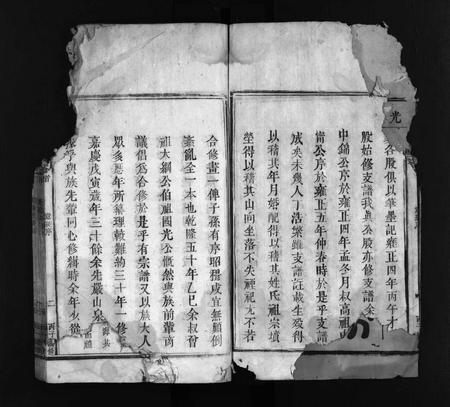 光
各股俱以筆墨記雍正四年丙午才
股始修支譜我奐公股亦修支譜余
中錦公序於雍正四年孟冬月叔高祖
公序於雍正五年仲春時於是乎支譜
成矣未幾人丁浩繁雖支譜註載生歿得
以稽其年月婚配得以稽其姓氏祖宗墳
塋得以稽其山向坐落不失禋祀尤不若
合修畫一俾子孫有序昭穆咸宜無顛倒
紊亂全一本也乾隆五十年乙巳余叔曾
祖大錦公伯祖國光公慨然與族前輩商
議倡爲合修於是乎有宗譜又以族大人
眾多歷年所纂理較難約三十年一修
嘉慶戊寅歲年三十餘余先嚴山泉
孚與族先輩同心修輯時余年幼從